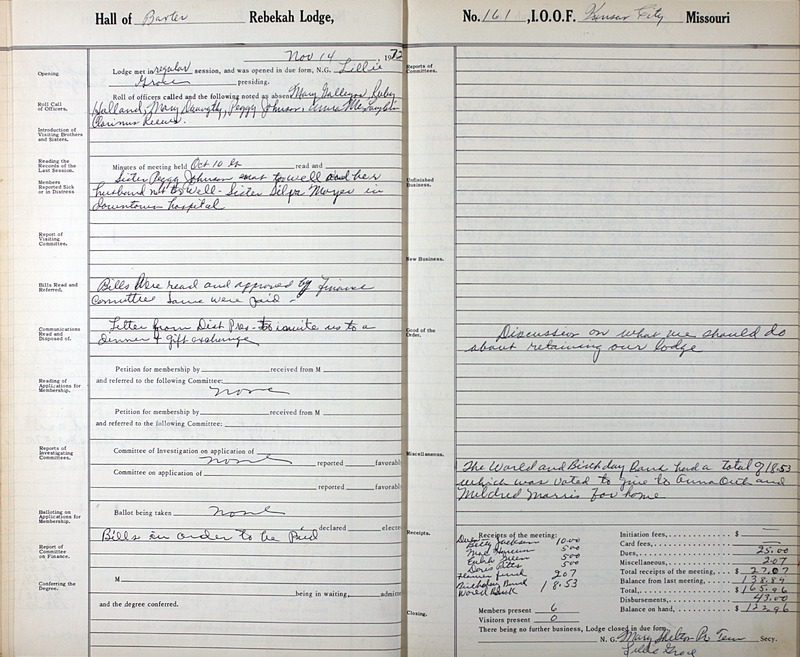 Hall of Baxter Rebekah Lodge,
Nov 14 1972
Opening.
Lodge met in regular session, and was opened in due form, N.G. Lillie
Grace presiding.
Roll Call of Officers.
Roll of officers called and the following noted as absent Mary Gallegos, Ruby
Holland, Mary Daugthy, Peggy Johnson, Anna McLaughlin
Clarinus Reeves.
Introduction of Visiting Brothers and Sisters.
Reading the Records of the Last Session.
Minutes of meeting held Oct 10 read and
Members Reported Sick or in Distress
Sister Peggy Johnson not to well and her
husband not to well - Sister Silpa Moyer in
downtown hospital
Report of Visiting Committee.
Bills Read and Referred.
Bills were read and approved by Finance
Committee same were paid -
Communications Read and Disposed of.
Letter from Dist Pres - to invite us to a
Dinner & gift exchange
Reading of Applications for Membership.
Petition for membership by received from M
and referred to the following Committee:
none
Petition for membership by received from M
and referred to the following Committee:
Reports of Investigating Committees.
Committee of Investigation on application of
none reported favorabl
Committee on application of
reported favorabl
Balloting on Applications for Membership.
Ballot being taken none
declared elected
Report of Committee on Finance.
Bills in order to be Paid
Conferring the Degree.
M
being in waiting, admitte
and the degree conferred.
No. 161, I.O.O.F. Kansas City Missouri
Reports of Committees.
Unfinished Business.
New Business.
Good of the Order.
Discussion on what we should do
about retaining our lodge
Miscellaneous.
The World and Birthday Bank had a total of 18.53
which was voted to give to Anna Orth and
Mildred Marris for home
Receipts.
Receipts of the meeting:
Dues Betty Jackson 10.00
5.00
Green 5.00
Doris 5.00
Flower fund 2.07
Birthday Bank
World Bank 18.53
Initiation fees, $
Card fees,
Dues, 25.00
Miscellaneous, 2.07
Total receipts of the meeting, $ 27.07
Balance from last meeting, 138.89
Total, $ 165.96
Disbursements, 43.00
Balance on hand, $ 122.96
Closing.
Members present 6
Visitors present 0
There being no further business, Lodge closed in due form.
N. G. Mary Shelton Pro Tem Secy.
Lillie Grace